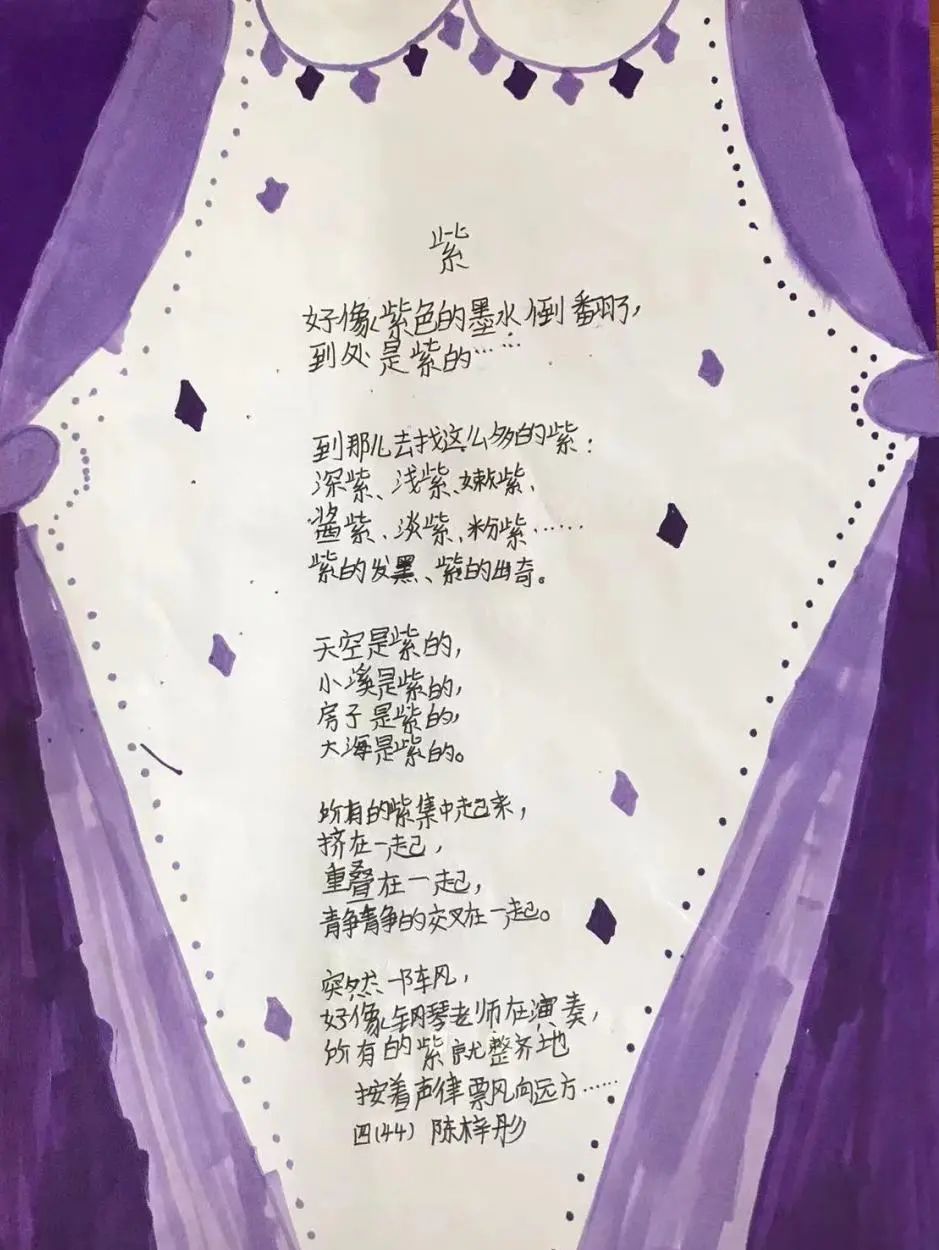 紫
好像紫色的墨水倒翻了,
到处是紫的……
到那儿去找这么多的紫:
深紫、浅紫、嫩紫、
酱紫、淡紫、粉紫……
紫的发黑、紫的出奇。
天空是紫的,
小溪是紫的,
房子是紫的,
大海是紫的。
所有的紫集中起来,
挤在一起,
重叠在一起,
静静的交叉在一起。
突然一阵风,
好像钢琴老师在演奏,
所有的紫就整齐地
按着声律飘向远方……
四(44) 陈梓彤